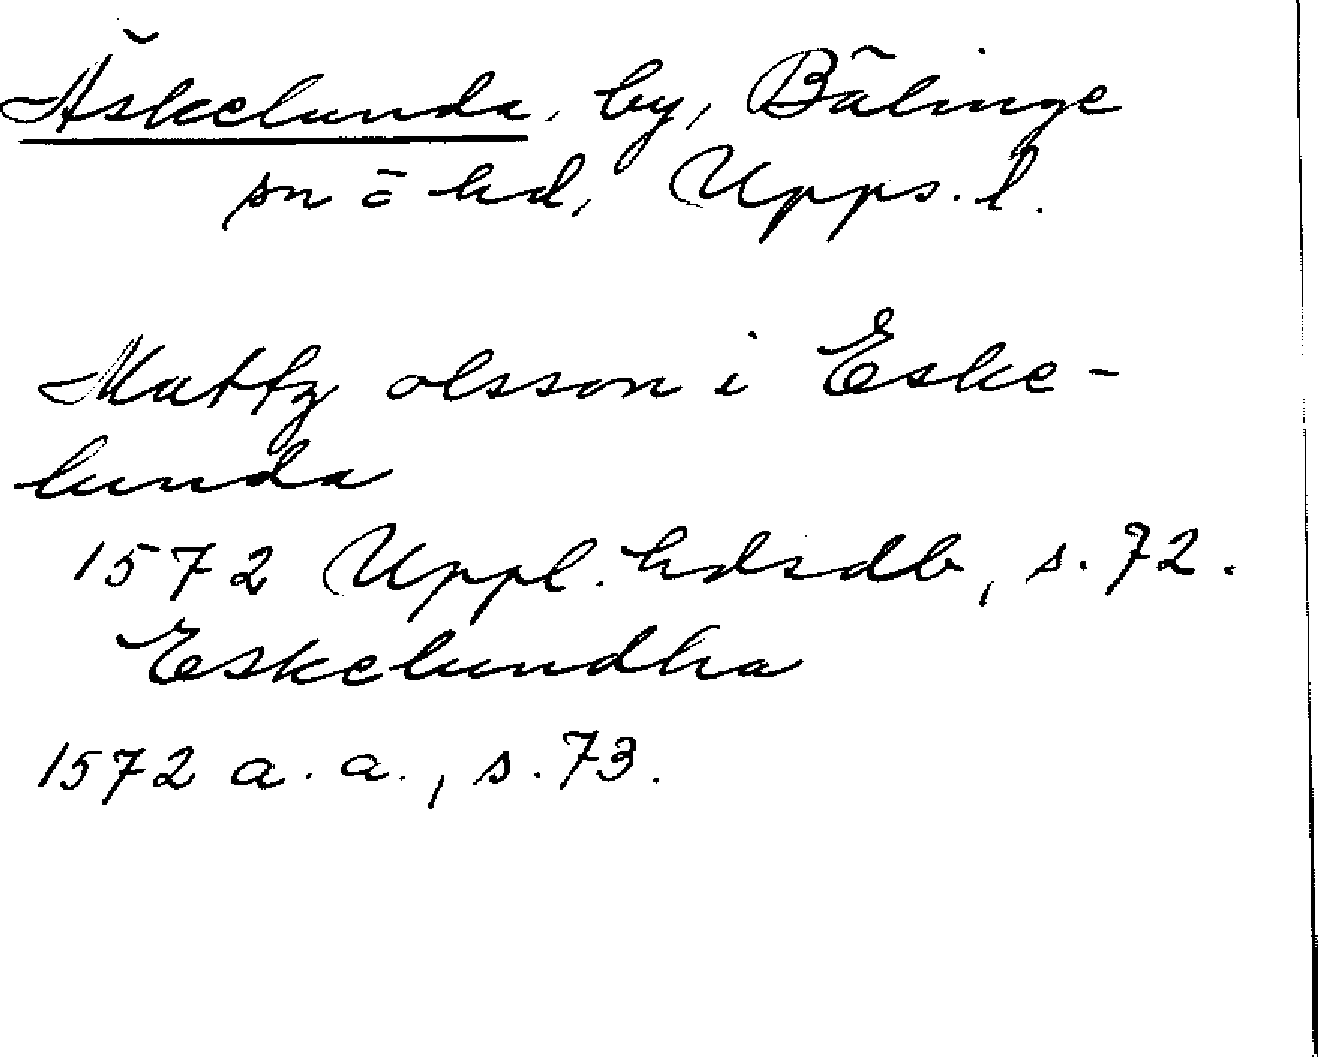 Äskelunda, by, Bälinge
sn o hd, Upps. l.
Mattz olsson i Eske-
lunda
1572 Uppl. hdsdb, s. 72.
Eskelundha
1572 a. a., s. 73.